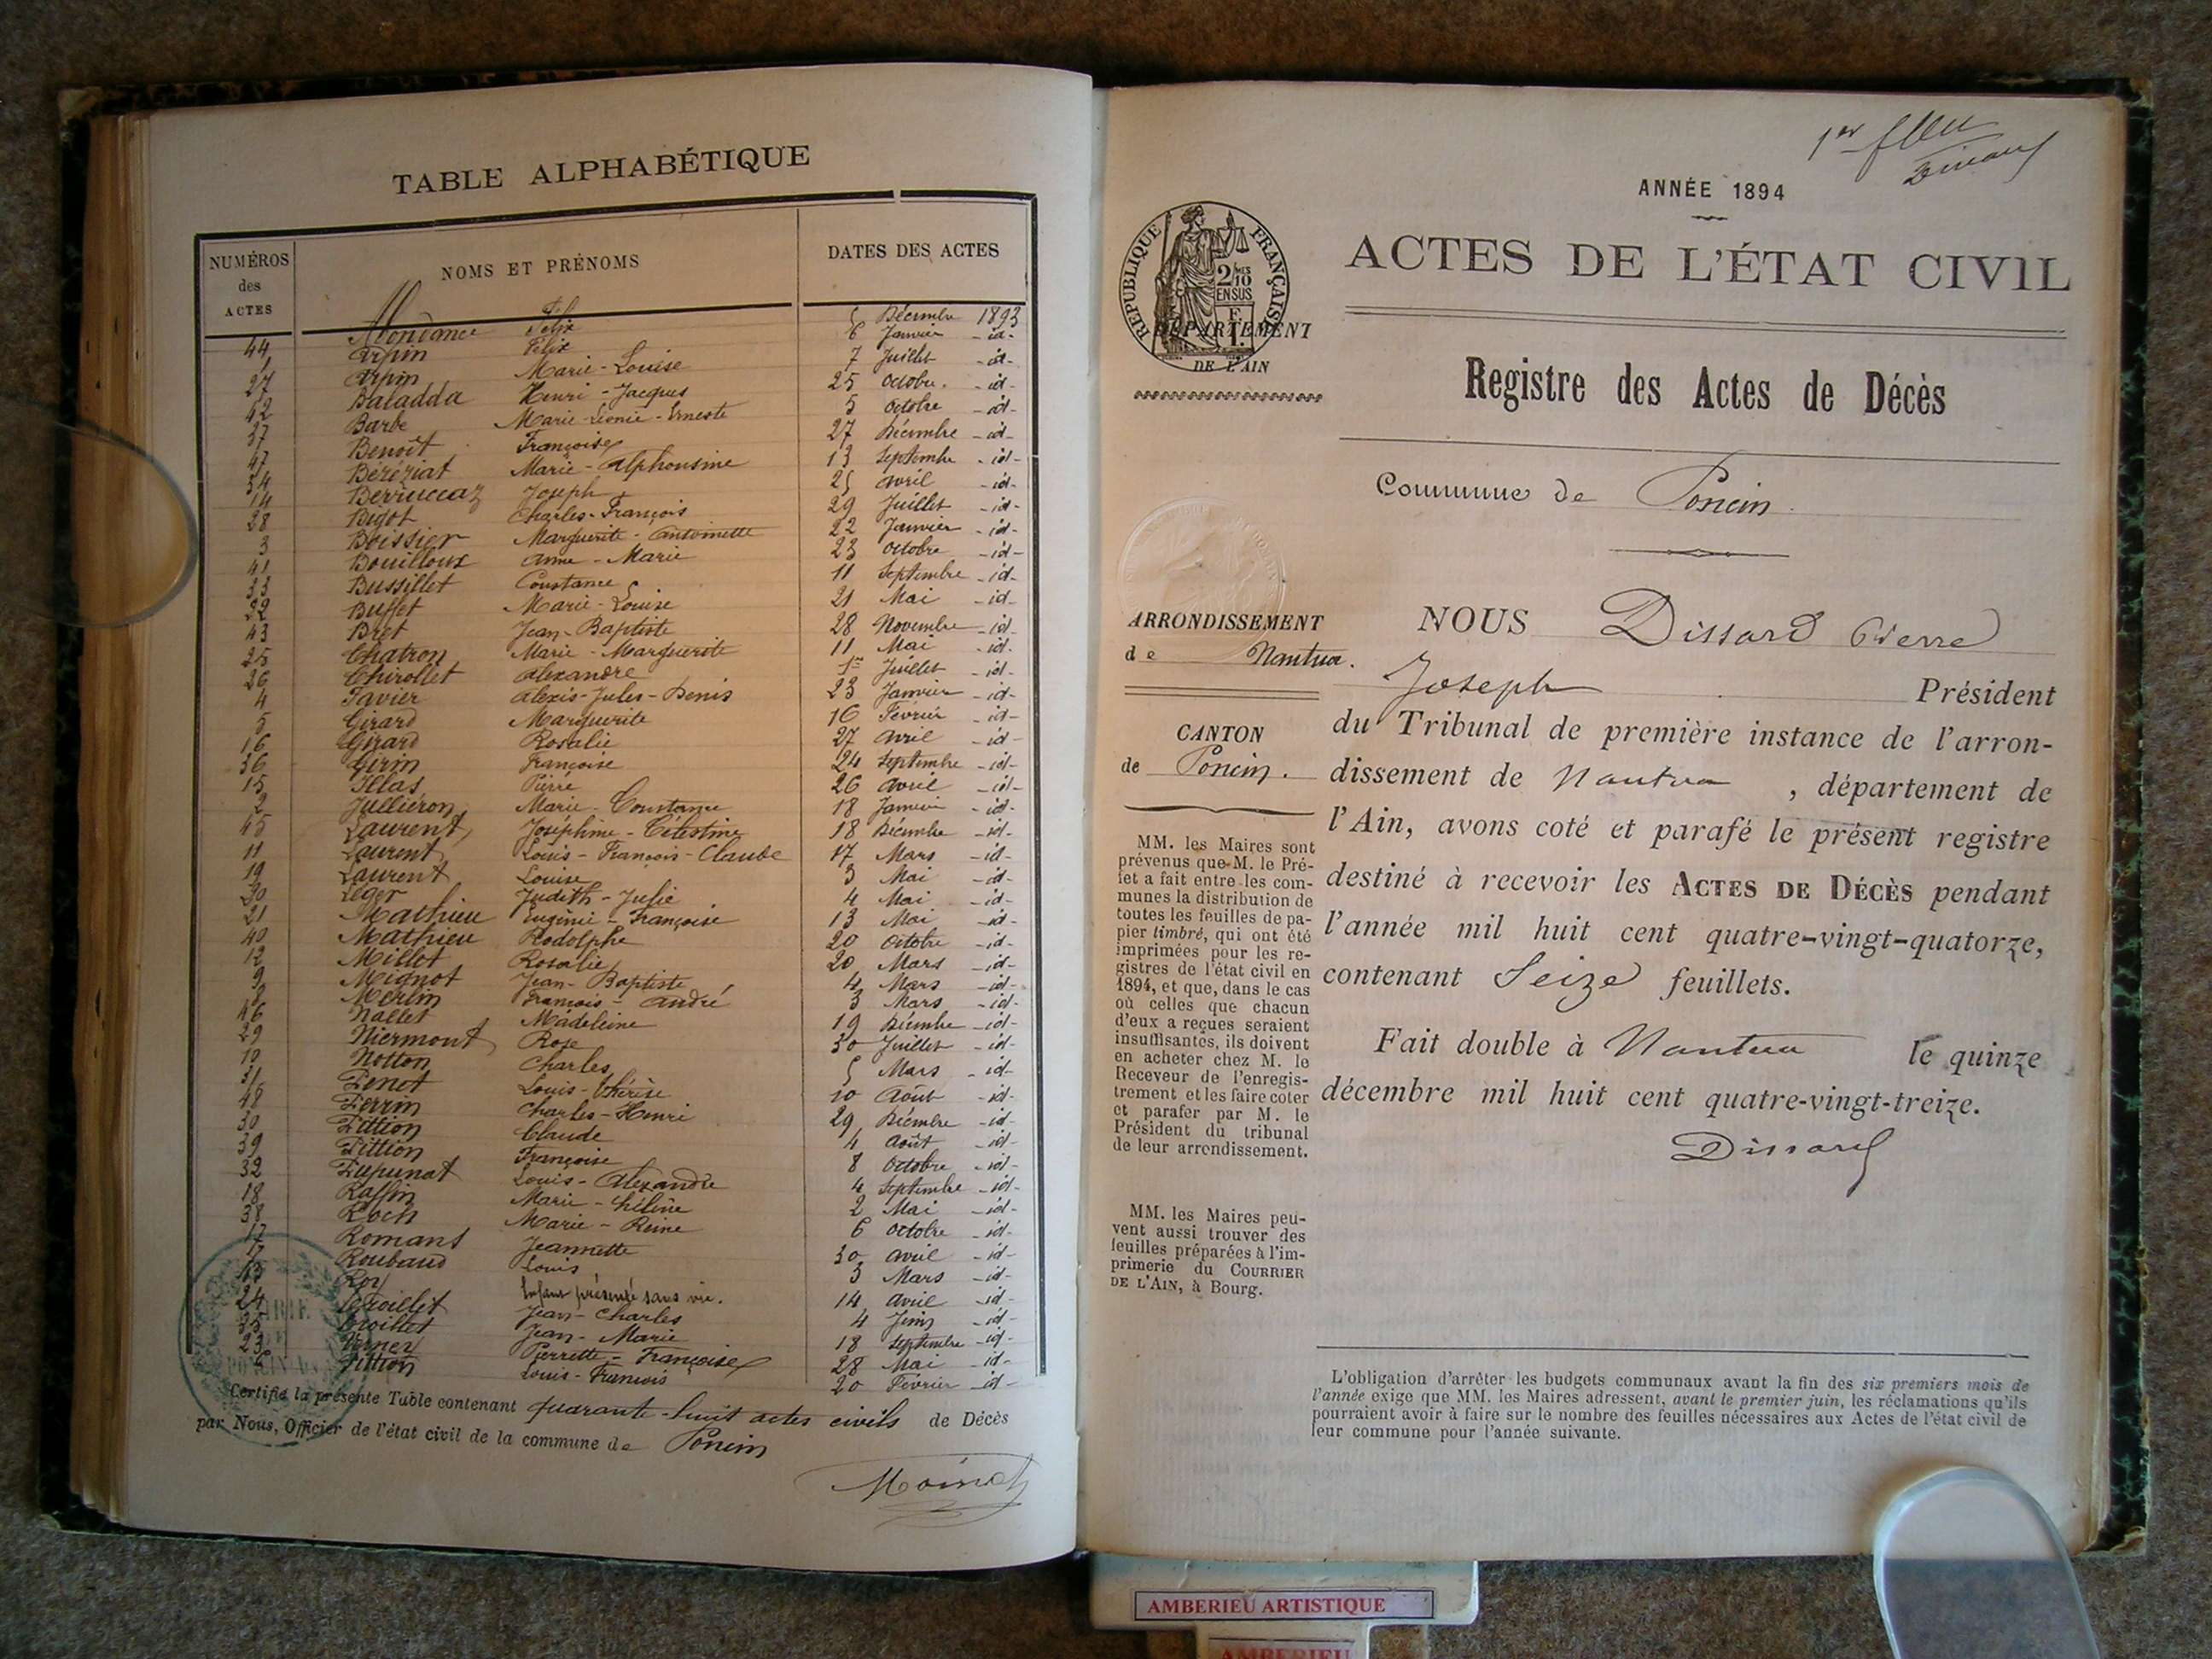 TABLE ALPHABÉTIQUE
NUMÉROS des ACTES
NOMS ET PRÉNOMS
DATES DES ACTES
44 Mondance Félix 5 Décembre 1893
1 Arpin Félix 6 Janvier - id -
27 Arpin Marie-Louise 7 Juillet - id -
42 Baladda Henri-Jacques 25 Octobre - id -
37 Barbe Marie-Léonie-Erneste 5 Octobre - id -
47 Benoît Françoise 27 Décembre - id -
34 Béréziat Marie-Alphonsine 13 Septembre - id -
14 Berruccaz Joseph 25 Avril - id -
28 Bigot Charles-François 29 Juillet - id -
3 Boissier Marguerite-Antoinette 22 Janvier - id -
41 Bouilloux Anne-Marie 23 Octobre - id -
33 Bussillet Constance 11 Septembre - id -
22 Buffet Marie-Louise 21 Mai - id -
43 Bret Jean-Baptiste 28 Novembre - id -
25 Chatron Marie-Marguerite 11 Mai - id -
26 Chirollet Alexandre 1er Juillet - id -
4 Favier Alexis-Jules-Denis 23 Janvier - id -
5 Girard Marguerite 16 Février - id -
16 Girard Rosalie 27 Avril - id -
36 Girin Françoise 24 Septembre - id -
15 Illas Pierre 26 Avril - id -
2 Julliéron Marie-Constance 18 Janvier - id -
45 Laurent Joséphine-Célestine 18 Décembre - id -
11 Laurent Louis-François-Claude 17 Mars - id -
19 Laurent Louise 3 Mai - id -
20 Léger Judith-Julie 4 Mai - id -
21 Mathieu Eugénie-Françoise 13 Mai - id -
40 Mathieu Rodolphe 20 Octobre - id -
12 Millot Rosalie 20 Mars - id -
9 Mignot Jean-Baptiste 4 Mars - id -
Merlin François-André 3 Mars - id -
46 Nallet Madeleine 19 Décembre - id -
29 Niermont Rose 30 Juillet - id -
10 Notton Charles 5 Mars - id -
31 Penot Louis-Thérèse 10 Août - id -
48 Perrin Charles-Henri 29 Décembre - id -
30 Pittion Claude 4 Août - id -
39 Pittion Françoise 8 Octobre - id -
32 Pupunat Louis-Alexandre 4 Septembre - id -
18 Raffin Marie-Hélène 2 Mai - id -
38 Roch Marie-Reine 6 Octobre - id -
17 Romans Jeannette 30 Avril - id -
Roubaud Louis 3 Mars - id -
13 Roy Enfant présenté sans vie. 14 Avril - id -
24 Troillet Jean-Charles 4 Juin - id -
35 Troillet Jean-Marie 18 Septembre - id -
23 Verney Perrette-Françoise 28 Mai - id -
6 Pittion Louis-François 20 Février - id -
Certifié la présente Table contenant quarante-huit actes civils de Décès
par Nous, Officier de l'état civil de la commune de Poncin
1er feu
Dissard
ANNÉE 1894
ACTES DE L'ÉTAT CIVIL
RÉPUBLIQUE FRANÇAISE
2/10mes EN SUS
DÉPARTEMENT
DE L'AIN
Registre des Actes de Décès
Commune de Poncin
ARRONDISSEMENT
de Nantua.
CANTON
de Poncin.
NOUS Dissard Pierre
Joseph Président
du Tribunal de première instance de l'arron-
dissement de Nantua, département de
l'Ain, avons coté et parafé le présent registre
destiné à recevoir les ACTES DE DÉCÈS pendant
l'année mil huit cent quatre-vingt-quatorze,
contenant Seize feuillets.
Fait double à Nantua le quinze
décembre mil huit cent quatre-vingt-treize.
Dissard
MM. les Maires sont
prévenus que M. le Pré-
fet a fait entre les com-
munes la distribution de
toutes les feuilles de pa-
pier timbré, qui ont été
imprimées pour les re-
gistres de l'état civil en
1894, et que, dans le cas
où celles que chacun
d'eux a reçues seraient
insuffisantes, ils doivent
en acheter chez M. le
Receveur de l'enregis-
trement et les faire coter
et parafer par M. le
Président du tribunal
de leur arrondissement.
MM. les Maires peu-
vent aussi trouver des
feuilles préparées à l'im-
primerie du COURRIER
DE L'AIN, à Bourg.
L'obligation d'arrêter les budgets communaux avant la fin des six premiers mois de
l'année exige que MM. les Maires adressent, avant le premier juin, les réclamations qu'ils
pourraient avoir à faire sur le nombre des feuilles nécessaires aux Actes de l'état civil de
leur commune pour l'année suivante.
AMBERIEU ARTISTIQUE
AMBERIEU